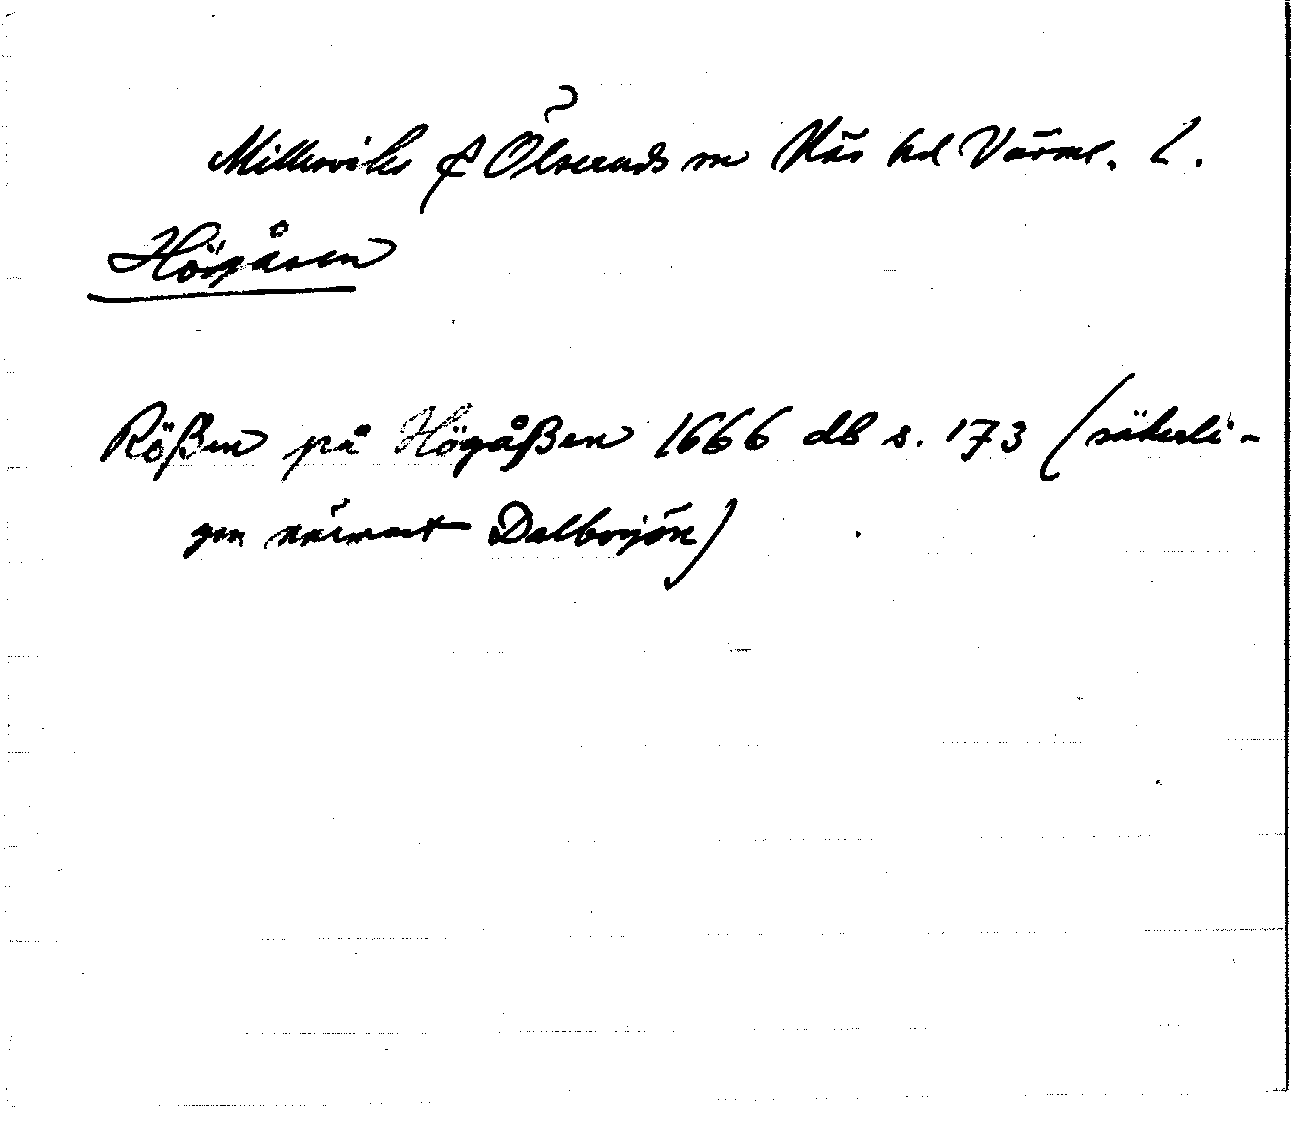 Millesviks f Ölseruds sn Näs hd Värml. L.
Högåsen
Rößen på Högåßen 1666 db s. 173 (säkerli-
gen närmast Dalbosjön)